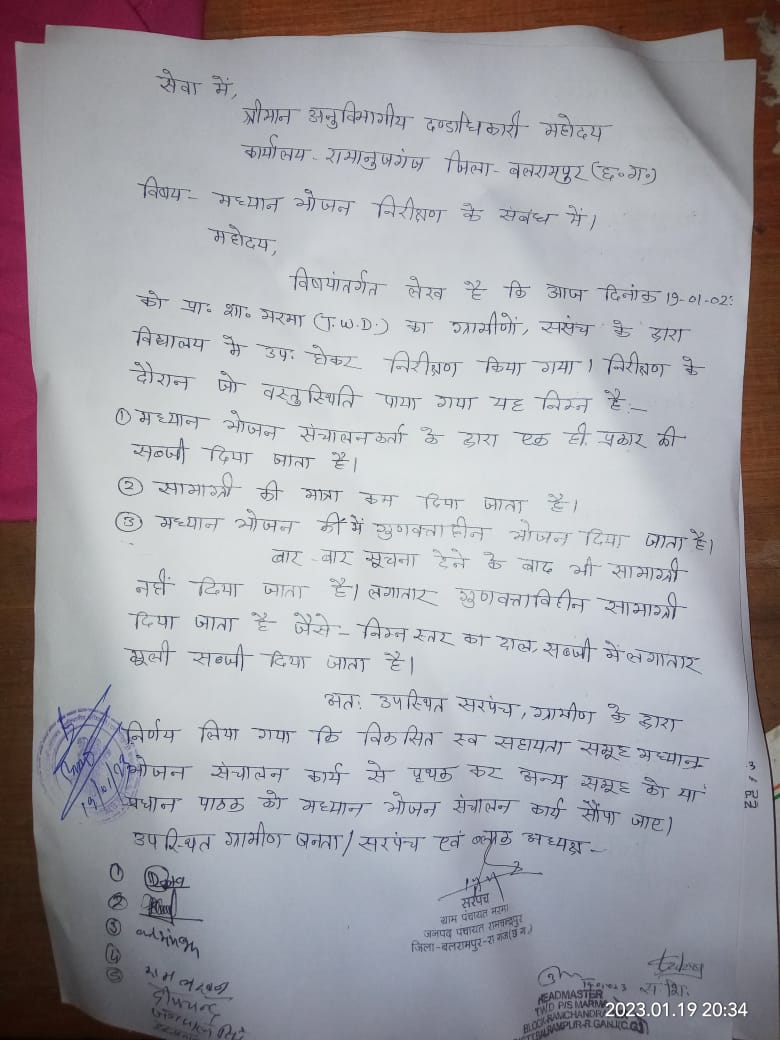 सेवा में,
श्रीमान अनुविभागीय दण्डाधिकारी महोदय
कार्यालय- रामानुजगंज जिला- बलरामपुर (छ०ग०)
विषय- मध्यान भोजन निरीक्षण के संबंध में।
महोदय,
विषयांतर्गत लेख है कि आज दिनांक 19-01-02:
को प्रा० शा० मरमा (T.W.D.) का ग्रामीणों, ससंच के द्वारा
विद्यालय मे उप: होकर निरीक्षण किया गया। निरीक्षण के
दौरान जो वस्तुस्थिति पाया गया यह निम्न है:-
① मध्यान भोजन संचालनकर्ता के द्वारा एक ही प्रकार की
सब्जी दिया जाता है।
② सामाग्री की मात्रा कम दिया जाता है।
③ मध्यान भोजन में गुणवक्ताहीन भोजन दिया जाता है।
बार-बार सूचना देने के बाद भी सामाग्री
नहीं दिया जाता है। लगातार गुणवक्ताविहीन सामाग्री
दिया जाता है जैसे- निम्न स्तर का दाल, सब्जी में लगातार
मूली सब्जी दिया जाता है।
अत: उपस्थित सरपंच, ग्रामीण के द्वारा
निर्णय लिया गया कि विकसित स्व सहायता समूह मध्यान
भोजन संचालन कार्य से पृथक कर अन्य समूह को या
प्रधान पाठक को मध्यान भोजन संचालन कार्य सौंपा जाए।
उपस्थित ग्रामीण जनता/सरपंच एवं ब्लाक अध्यक्ष-
①
②
③
④
⑤
राम लखन
सरपंच
ग्राम पंचायत मरमा
जनपद पंचायत रामचन्द्रपुर
जिला-बलरामपुर-रा.गंज(छ.ग.)
HEADMASTER
TWD P/S MARMA
BLOCK-RAMCHANDRAPUR
DISTT.BALRAMPUR-R.GANJ(C.G.)
2023.01.19 20:34